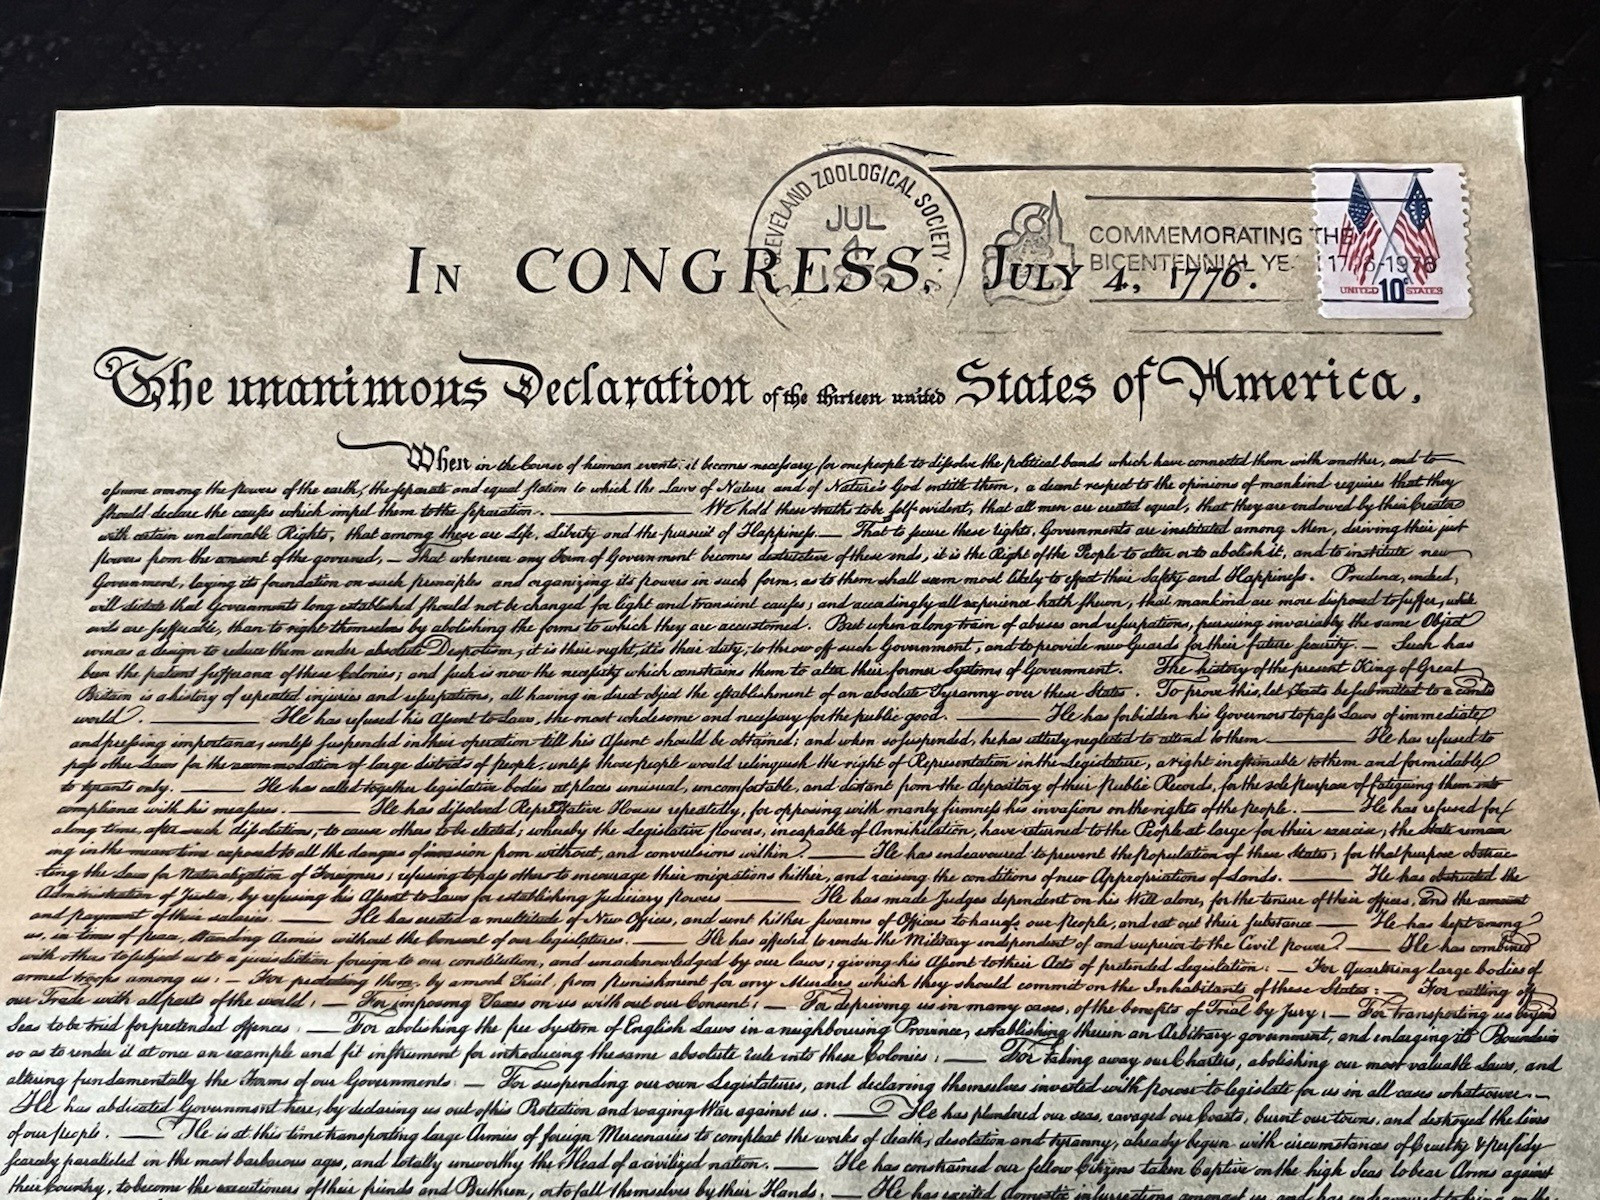 CLEVELAND ZOOLOGICAL SOCIETY
JUL
4
1976
COMMEMORATING THE
BICENTENNIAL YEAR 1776-1976
UNITED 10c STATES
IN CONGRESS, JULY 4, 1776.
The unanimous Declaration of the thirteen united States of America,
When in the Course of human events, it becomes necessary for one people to dissolve the political bands which have connected them with another, and to
assume among the powers of the earth, the separate and equal station to which the Laws of Nature and of Nature's God entitle them, a decent respect to the opinions of mankind requires that they
should declare the causes which impel them to the separation. ——— We hold these truths to be self-evident, that all men are created equal, that they are endowed by their Creator
with certain unalienable Rights, that among these are Life, Liberty and the pursuit of Happiness. — That to secure these rights, Governments are instituted among Men, deriving their just
powers from the consent of the governed, — That whenever any Form of Government becomes destructive of these ends, it is the Right of the People to alter or to abolish it, and to institute new
Government, laying its foundation on such principles and organizing its powers in such form, as to them shall seem most likely to effect their Safety and Happiness. Prudence, indeed,
will dictate that Governments long established should not be changed for light and transient causes; and accordingly all experience hath shewn, that mankind are more disposed to suffer, while
evils are sufferable, than to right themselves by abolishing the forms to which they are accustomed. But when a long train of abuses and usurpations, pursuing invariably the same Object
evinces a design to reduce them under absolute Despotism, it is their right, it is their duty, to throw off such Government, and to provide new Guards for their future security. — Such has
been the patient sufferance of these Colonies; and such is now the necessity which constrains them to alter their former Systems of Government. The history of the present King of Great
Britain is a history of repeated injuries and usurpations, all having in direct object the establishment of an absolute Tyranny over these States. To prove this, let Facts be submitted to a candid
world. ——— He has refused his Assent to Laws, the most wholesome and necessary for the public good. ——— He has forbidden his Governors to pass Laws of immediate
and pressing importance, unless suspended in their operation till his Assent should be obtained; and when so suspended, he has utterly neglected to attend to them ——— He has refused to
pass other Laws for the accommodation of large districts of people, unless those people would relinquish the right of Representation in the Legislature, a right inestimable to them and formidable
to tyrants only. ——— He has called together legislative bodies at places unusual, uncomfortable, and distant from the depository of their Public Records, for the sole purpose of fatiguing them into
compliance with his measures. ——— He has dissolved Representative Houses repeatedly, for opposing with manly firmness his invasions on the rights of the people. ——— He has refused for
a long time, after such dissolutions, to cause others to be elected; whereby the Legislative powers, incapable of Annihilation, have returned to the People at large for their exercise; the State remain
ing in the mean time exposed to all the dangers of invasion from without, and convulsions within. ——— He has endeavoured to prevent the population of these States; for that purpose obstruc
ting the Laws for Naturalization of Foreigners; refusing to pass others to encourage their migrations hither, and raising the conditions of new Appropriations of Lands. ——— He has obstructed the
Administration of Justice, by refusing his Assent to Laws for establishing Judiciary powers ——— He has made Judges dependent on his Will alone, for the tenure of their offices, and the amount
and payment of their salaries. ——— He has erected a multitude of New Offices, and sent hither swarms of Officers to harrass our people, and eat out their substance ——— He has kept among
us, in times of peace, Standing Armies without the Consent of our legislatures. ——— He has affected to render the Military independent of and superior to the Civil power. ——— He has combined
with others to subject us to a jurisdiction foreign to our constitution, and unacknowledged by our laws; giving his Assent to their Acts of pretended Legislation: — For Quartering large bodies of
armed troops among us: — For protecting them, by a mock Trial, from Punishment for any Murders which they should commit on the Inhabitants of these States: — For cutting off
our Trade with all parts of the world: — For imposing Taxes on us without our Consent: — For depriving us in many cases, of the benefits of Trial by Jury: — For transporting us beyond
Seas to be tried for pretended offences: — For abolishing the free System of English Laws in a neighbouring Province, establishing therein an Arbitrary government, and enlarging its Boundaries
so as to render it at once an example and fit instrument for introducing the same absolute rule into these Colonies: — For taking away our Charters, abolishing our most valuable Laws, and
altering fundamentally the Forms of our Governments: — For suspending our own Legislatures, and declaring themselves invested with power to legislate for us in all cases whatsoever. —
He has abdicated Government here, by declaring us out of his Protection and waging War against us. ——— He has plundered our seas, ravaged our Coasts, burnt our towns, and destroyed the lives
of our people. ——— He is at this time transporting large Armies of foreign Mercenaries to compleat the works of death, desolation and tyranny, already begun with circumstances of Cruelty & perfidy
scarcely paralleled in the most barbarous ages, and totally unworthy the Head of a civilized nation. ——— He has constrained our fellow Citizens taken Captive on the high Seas to bear Arms against
their Country, to become the executioners of their friends and Brethren, or to fall themselves by their Hands. ——— He has excited domestic insurrections amongst us, and has endeavoured to